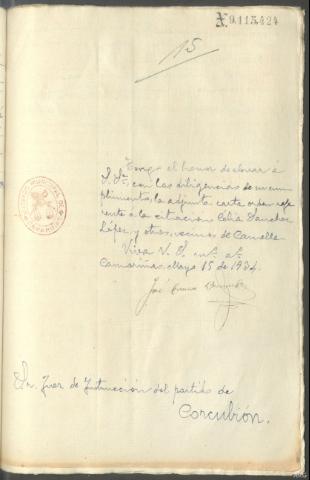 X.9.115.424
15
Tengo el honor de elevar á
S. Sª, con las diligencias de su cum-
plimiento, la adjunta carta orden refe-
rente á la citación Celia Sanchez
López y otros, vecinos de Camelle.
Viva V. S. ms. as.
Camariñas Mayo 15 de 1934.
José
Sr. Juez de Instrucción del partido de
Corcubión.